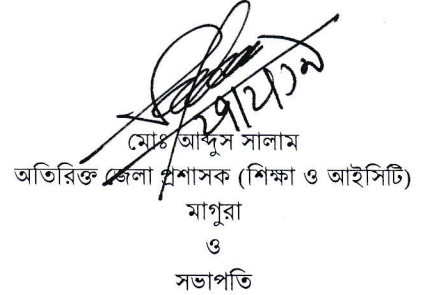 মোঃ আব্দুস সালাম
অতিরিক্ত জেলা প্রশাসক (শিক্ষা ও আইসিটি)
মাগুরা
ও
সভাপতি